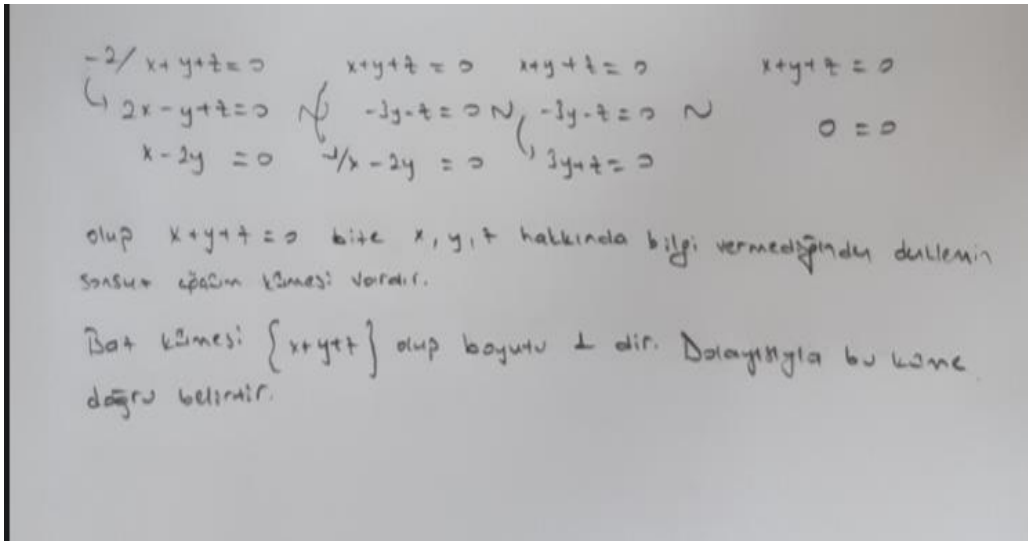 -2/ x+y+z=0 x+y+z=0 x+y+z=0 x+y+z=0
2x-y+z=0 ~ -3y-z=0 ~ -3y-z=0 ~ 0=0
x-2y=0 -1/x-2y=0 3y+z=0
olup x+y+z=0 bize x, y, z hakkında bilgi vermediğinden denklemin
sonsuz çözüm kümesi vardır.
Baz kümesi {x+y+z} olup boyutu 1 dir. Dolayısıyla bu küme
doğru belirtir.